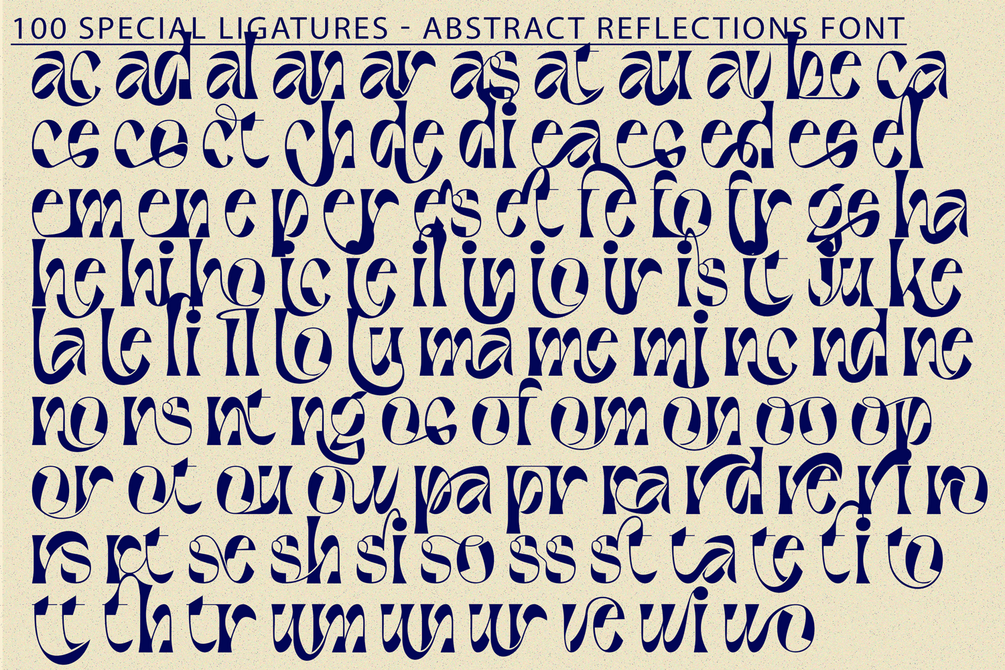 100 SPECIAL LIGATURES - ABSTRACT REFLECTIONS FONT
ac ad al an ar as at au av be ca
ce co ct ch de di ea ec ed ee el
em en e p er es et fe fo fr ge ha
he hi ho ic ie il in io ir is it ju ke
la le li ll lo lu ma me mi nc nd ne
no ns nt ng oc of om on oo op
or ot ou ow pa pr ra rd re ri ro
rs rt se sh si so ss st ta te ti to
tt th tr um un ur ve wi wo